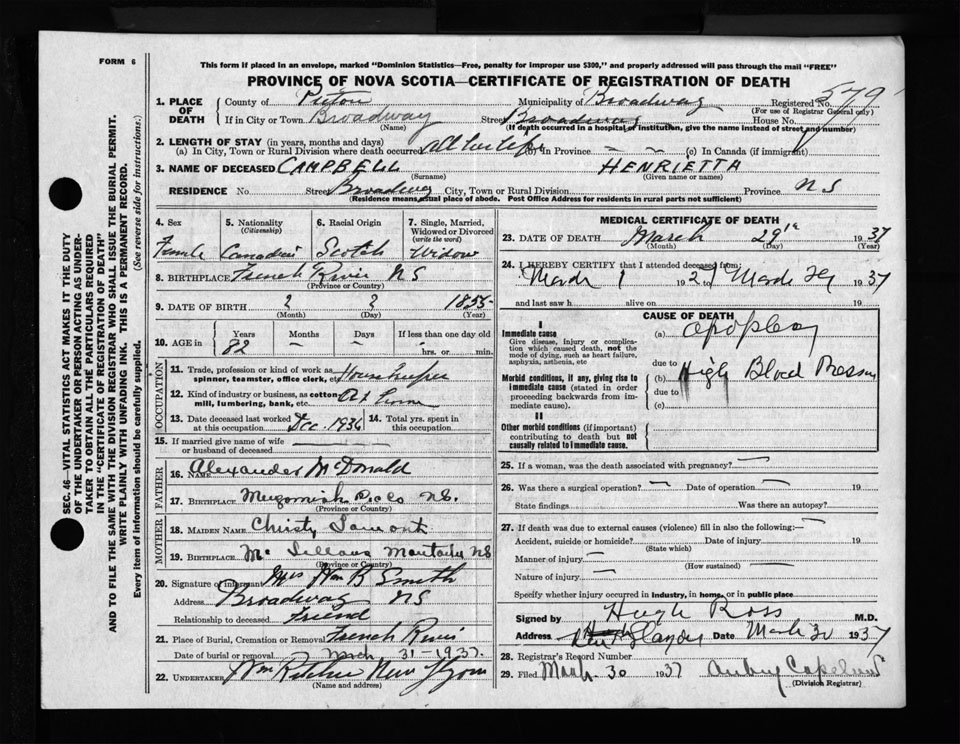 FORM 6
This form if placed in an envelope, marked "Dominion Statistics—Free, penalty for improper use $300," and properly addressed will pass through the mail "FREE"
PROVINCE OF NOVA SCOTIA—CERTIFICATE OF REGISTRATION OF DEATH
1. PLACE OF DEATH
County of Pictou Municipality of Broadway Registered No. 579
(For use of Registrar General only)
If in City or Town Broadway Street Broadway House No.
(Name) (If death occurred in a hospital or institution, give the name instead of street and number)
2. LENGTH OF STAY (in years, months and days)
(a) In City, Town or Rural Division where death occurred all her life (b) In Province – – (c) In Canada (if immigrant)
3. NAME OF DECEASED CAMPBELL HENRIETTA
(Surname) (Given name or names)
RESIDENCE No. Street Broadway City, Town or Rural Division Province NS
(Residence means usual place of abode. Post Office Address for residents in rural parts not sufficient)
4. Sex 5. Nationality (Citizenship) 6. Racial Origin 7. Single, Married, Widowed or Divorced (write the word)
Female Canadian Scotch Widow
8. BIRTHPLACE French River NS
(Province or Country)
9. DATE OF BIRTH 2 3 1855
(Month) (Day) (Year)
10. AGE in Years Months Days If less than one day old
82 – – hrs. or min.
OCCUPATION
11. Trade, profession or kind of work as spinner, teamster, office clerk, etc. Housekeeper
12. Kind of industry or business, as cotton mill, lumbering, bank, etc. At home
13. Date deceased last worked at this occupation Dec. 1936 14. Total yrs. spent in this occupation
15. If married give name of wife or husband of deceased
FATHER
16. NAME Alexander McDonald
17. BIRTHPLACE NS.
(Province or Country)
MOTHER
18. MAIDEN NAME Christy Lamont
19. BIRTHPLACE NS
(Province or Country)
20. Signature of informant Mrs Wm B Smith
Address Broadway NS
Relationship to deceased Friend
21. Place of Burial, Cremation or Removal French River
Date of burial or removal March 31–1937.
22. UNDERTAKER New
(Name and address)
MEDICAL CERTIFICATE OF DEATH
23. DATE OF DEATH March 29th 1937
(Month) (Day)
24. I HEREBY CERTIFY that I attended deceased from:
March 1 192 1937
and last saw h alive on 19
CAUSE OF DEATH
I
Immediate cause
Give disease, injury or complication which caused death, not the mode of dying, such as heart failure, asphyxia, asthenia, etc
(a) Apoplexy
due to
Morbid conditions, if any, giving rise to immediate cause (stated in order proceeding backwards from immediate cause).
(b) High Blood Pressure
due to
(c)
II
Other morbid conditions (if important) contributing to death but not causally related to immediate cause.
25. If a woman, was the death associated with pregnancy? –
26. Was there a surgical operation? – Date of operation – 19
State findings Was there an autopsy?
27. If death was due to external causes (violence) fill in also the following:– –
Accident, suicide or homicide? Date of injury 19
(State which)
Manner of injury –
(How sustained)
Nature of injury –
Specify whether injury occurred in industry, in home, or in public place
Signed by Hugh Ross M.D.
Address Date March 30 1937
28. Registrar's Record Number
29. Filed March 30 1937
(Division Registrar)
SEC. 46—VITAL STATISTICS ACT MAKES IT THE DUTY
OF THE UNDERTAKER OR PERSON ACTING AS UNDERTAKER TO OBTAIN ALL THE PARTICULARS REQUIRED
IN THE "CERTIFICATE OF REGISTRATION OF DEATH"
AND TO FILE THE SAME WITH THE DIVISION REGISTRAR WHO SHALL ISSUE THE BURIAL PERMIT.
WRITE PLAINLY WITH UNFADING INK. THIS IS A PERMANENT RECORD.
Every item of information should be carefully supplied. (See reverse side for instructions.)